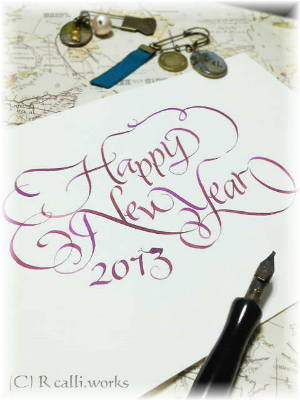 Happy
New Year
2013
(C) R calli.works